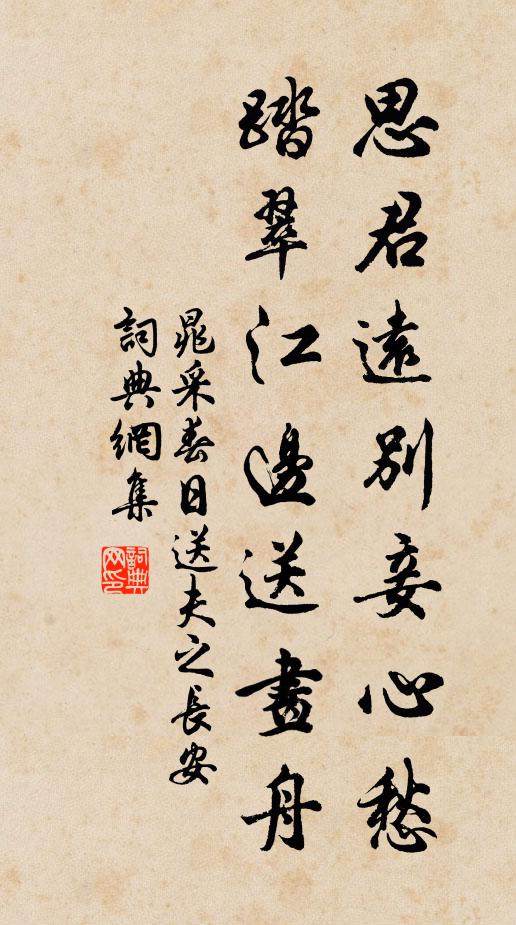 思君遠別妾心愁
踏翠江邊送畫舟
晁采春日送夫之長安
詞典網集
詞典網印